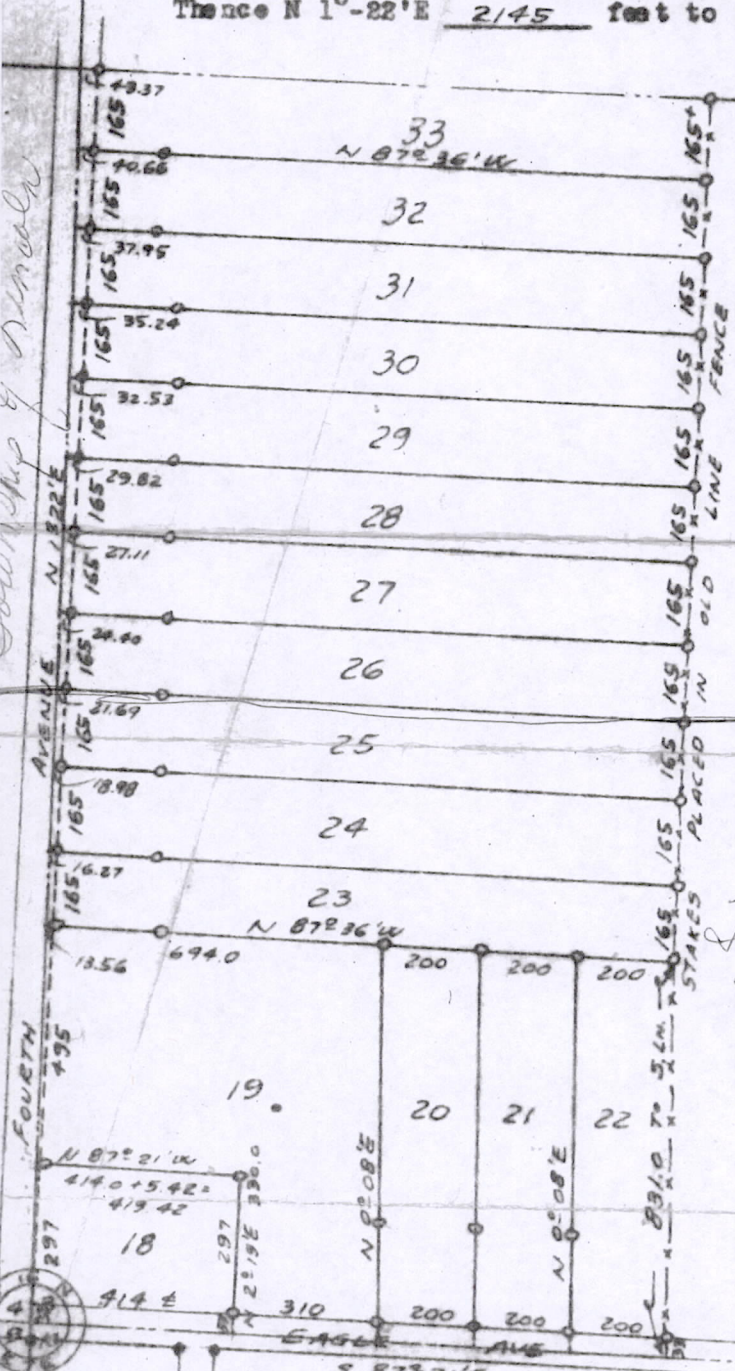 Thence N 1°-22'E 2145 feet to
43.37
165
33
165+
N 87° 36' W
40.66
165
32
165
37.95
165
31
165
35.24
165
30
165
32.53
165
29
165
29.82
165
28
165
27.11
165
27
165
24.40
165
26
165
21.69
165
25
165
18.98
165
24
165
16.27
165
23
165
N 87° 36' W
13.56
694.0
200
200
200
FOURTH AVENUE N 1° 22' E
STAKES PLACED IN OLD LINE FENCE
Township of Lincoln
495
19
20
21
22
N 87° 21' W
414.0 + 5.42 =
419.42
330.0
N 0° 08' E
N 0° 08' E
831.0 TO
297
18
297
N 2° 19' E
414 ±
310
200
200
200
EAGLE AVE